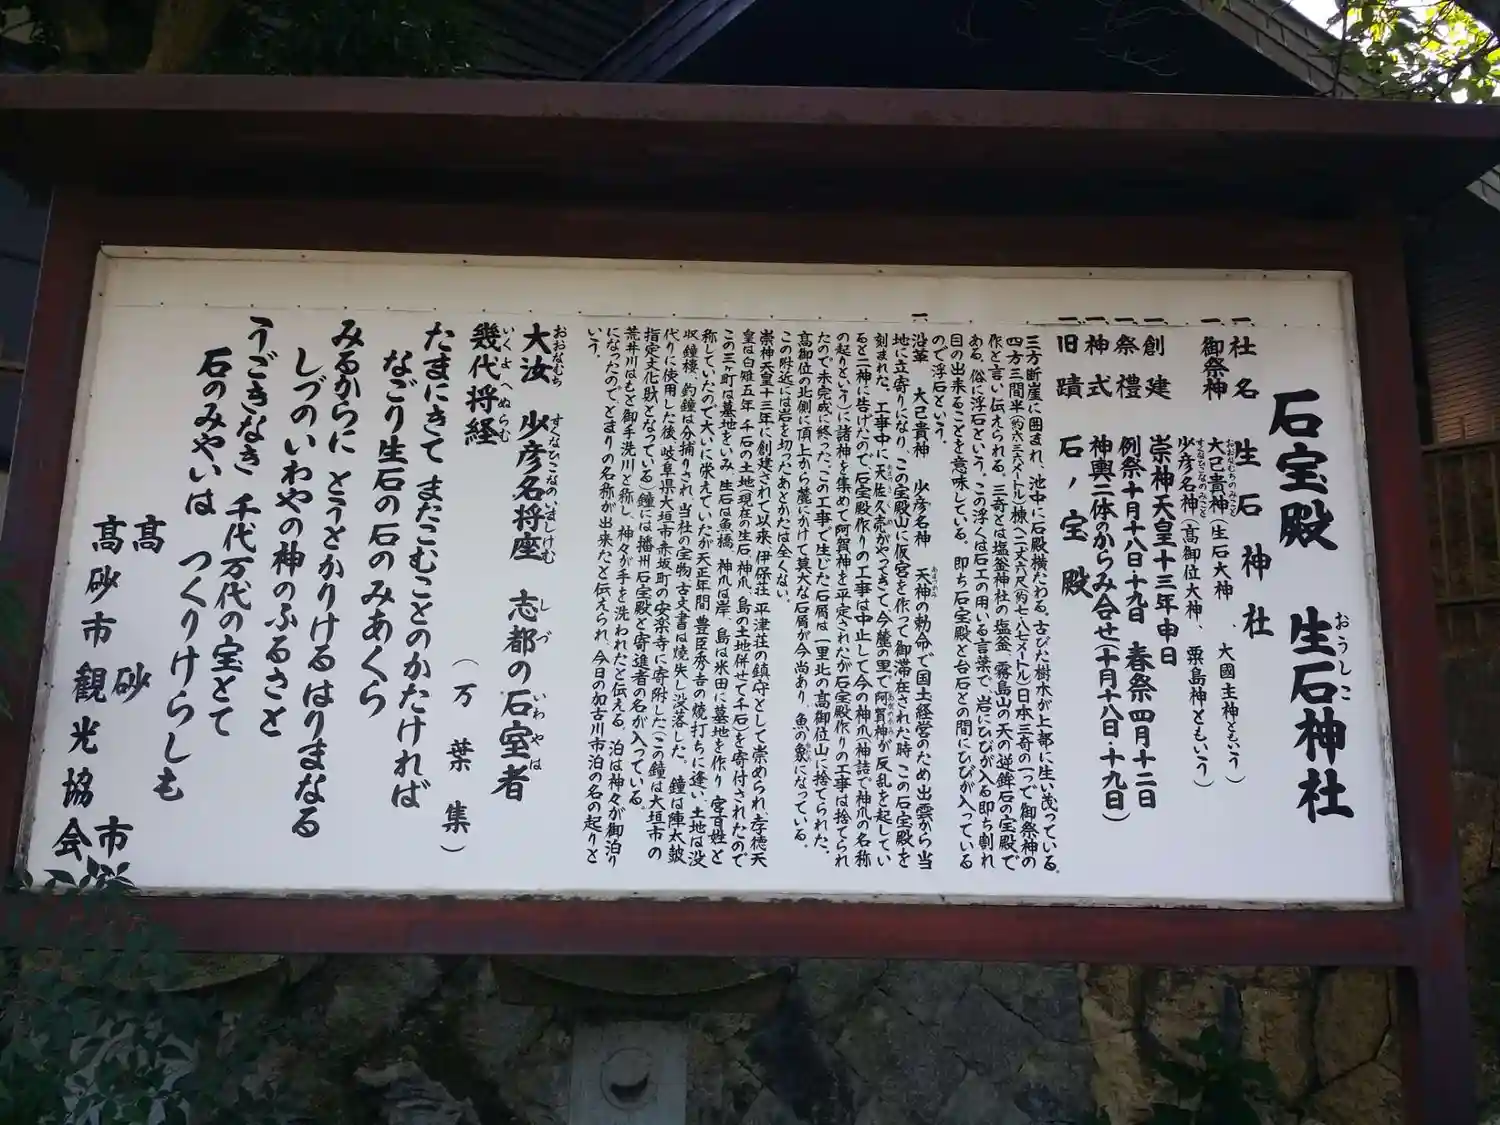 石宝殿 生石神社
おうしこ
一、社名 生石神社
一、御祭神 大己貴神(生石大神、大國主神ともいう)
おおなむちのみこと
少彦名神(高御位大神、粟島神ともいう)
すくなひこなのみこと
一、創建 崇神天皇十三年申日
一、祭禮 例祭十月十八日・十九日 春祭四月十二日
一、神式 神輿二体のからみ合せ(十月十八日・十九日)
一、旧蹟 石ノ宝殿
三方断崖に囲まれ、池中に石殿横たわる。古びた樹木が上部に生い茂っている。
四方三間半(約六・三六メートル)棟へ二丈六尺(約七・八七メートル)日本三奇の一つで御祭神の
作と言い伝えられる。三奇とは塩釜神社の塩釜、霧島山の天の逆鉾石の宝殿で
ある。俗に浮石という。この浮くは石工の用いる言葉で、岩にひびが入る即ち割れ
目の出来ることを意味している。即ち石宝殿と台石との間にひびが入っている
ので浮石という。
一、沿革 大己貴神 少彦名神 天神の勅命で国土経営のため出雲から当
地に立寄りになり、この宝殿山に仮宮を作って御滞在された時、この石宝殿を
刻まれた。工事中に天佐久売がやってきて、今麓の里で阿賀神が反乱を起してい
ると二神に告げたので、石宝殿作りの工事は中止して今の神爪(神詰で神爪の名称
の起りという)に諸神を集めて阿賀神を平定されたが石宝殿作りの工事は捨てられ
たので未完成に終った。この工事で生じた石屑は一里北の高御位山に捨てられた。
高御位の北側に頂上から麓にかけて莫大な石屑が今尚あり、魚の象になっている。
この附近には岩を切ったあとかたは全くない。
崇神天皇十三年に創建されて以来、伊保荘、平津荘の鎮守として崇められ、孝徳天
皇は白雉五年、千石の土地(現在の生石、神爪、島の土地併せて千石)を寄付されたので
この三ヶ町は墓地をいみ、生石は魚橋、神爪は岸、島は米田に墓地を作り、宮百姓と
称していたので大いに栄えていたが天正年間、豊臣秀吉の焼打ちに逢い、土地は没
収、鐘楼、釣鐘は分捕りされ、当社の宝物・古文書は焼失し没落した。鐘は陣太鼓
代りに使用した後、岐阜県大垣市赤坂町の安楽寺に寄附した(この鐘は大垣市の
指定文化財となっている)鐘には播州石宝殿と寄進者の名が入っている。
荒井川はもと御手洗川と称し、神々が手を洗われたと伝える。泊は神々が御泊り
になったので、とまりの名称が出来たと伝えられ、今日の加古川市泊の名の起りと
いう。
大汝 少彦名将座 志都の石室者
おおなむち すくなひこなのいましけむ しづ いわやは
幾代将経 (万葉集)
いくよへぬらむ
たまにきて またこむことのかたければ
なごり生石の石のみあくら
みるからに とうとかりけるはりまなる
しづのいわやの神のふるさと
うごきなき 千代万代の宝とて
石のみやいは つくりけらしも
高砂市
高砂市観光協会